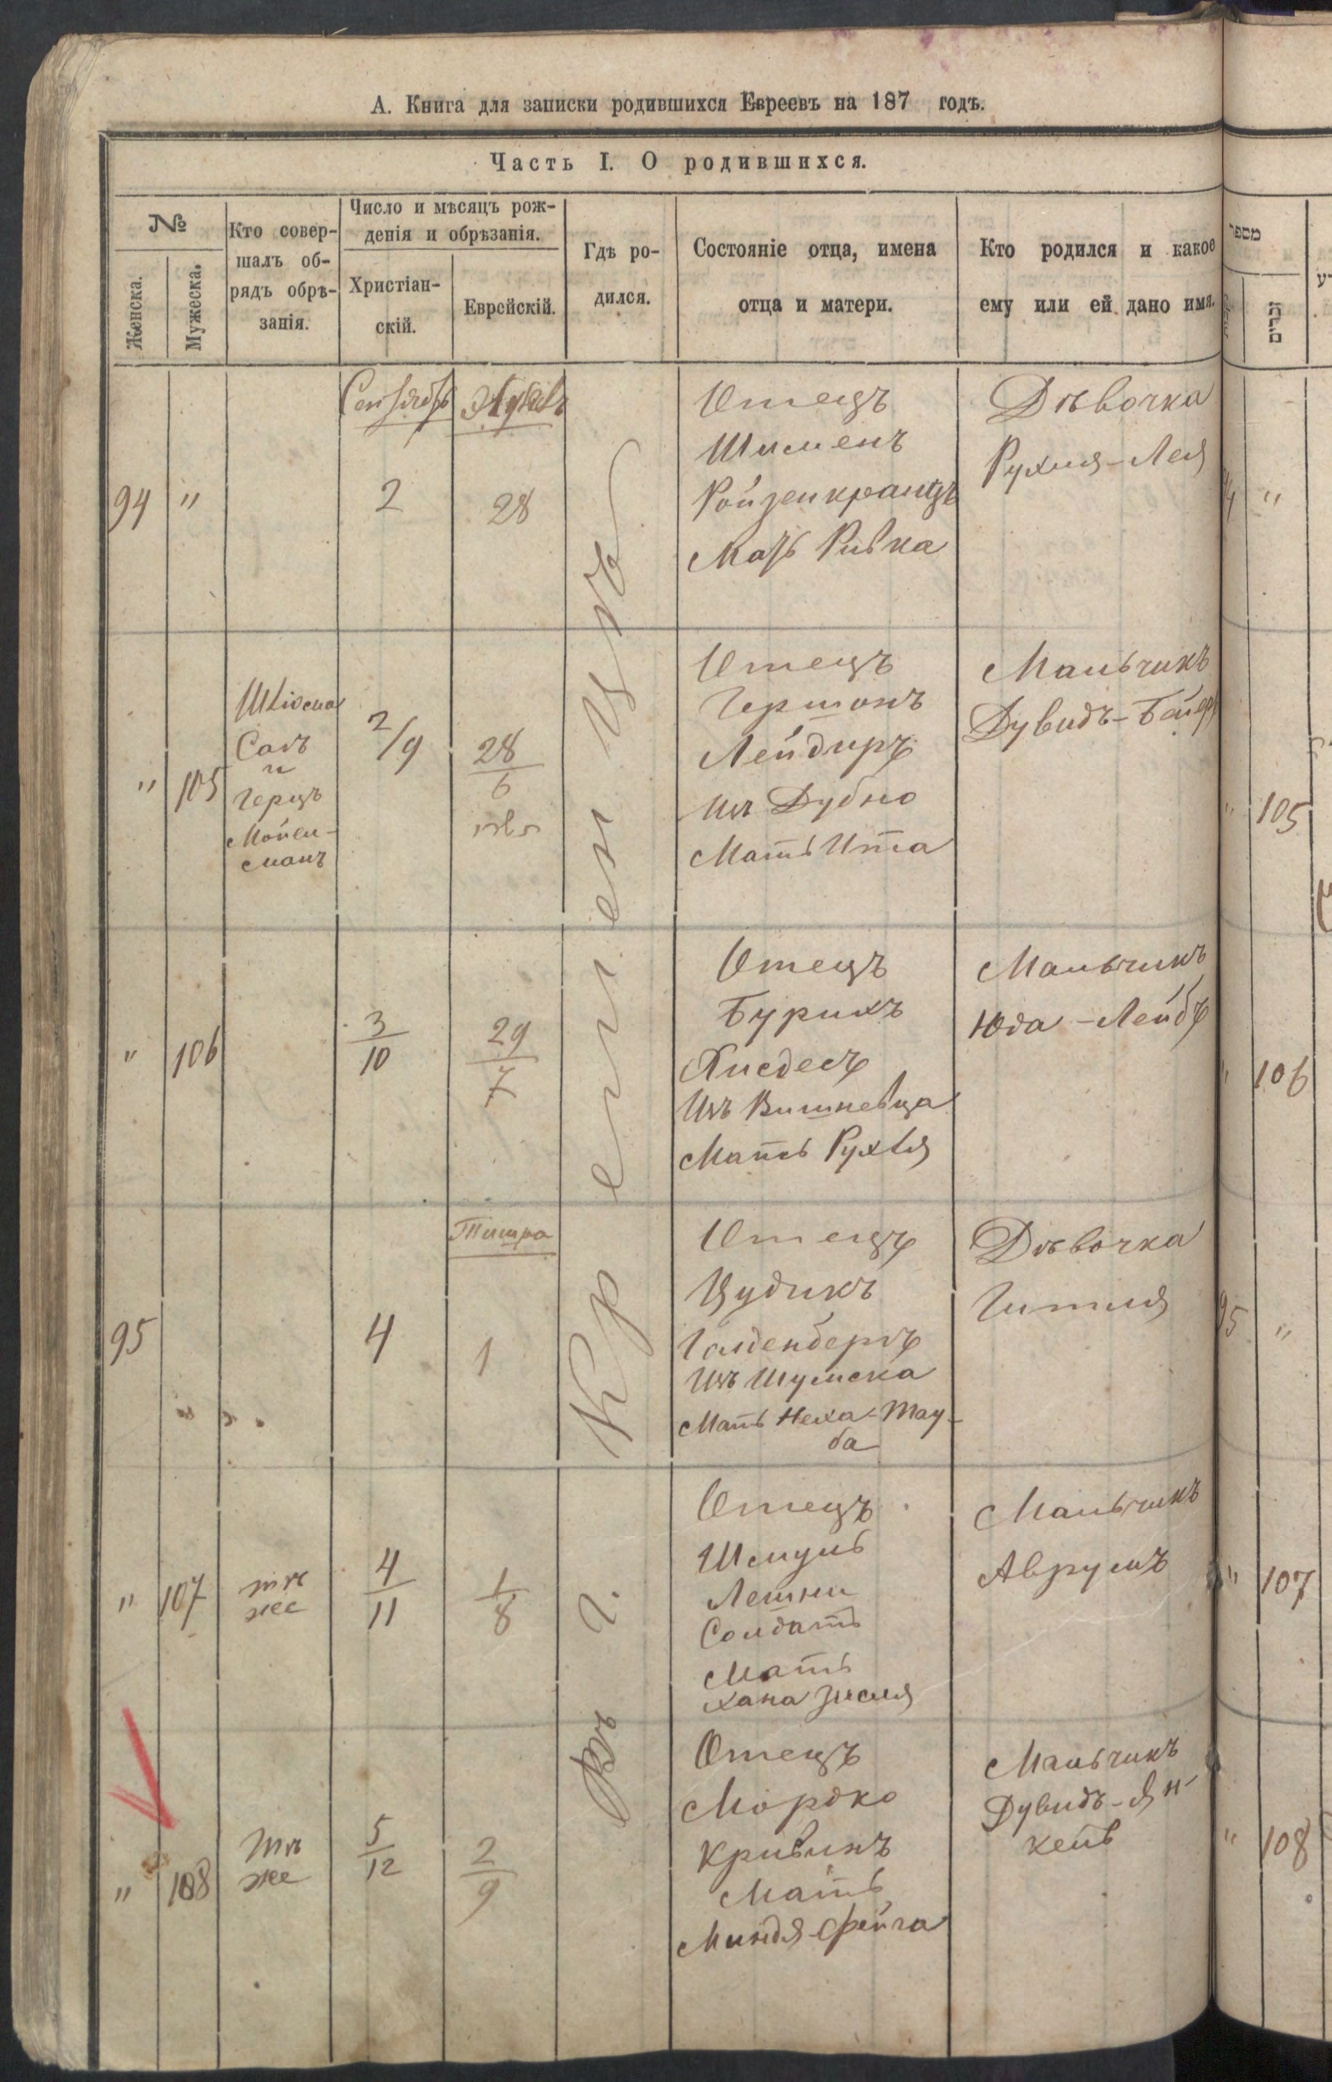 А. Книга для записки родившихся Евреевъ на 187 годъ.
Часть I. О родившихся.
№
Женска.
Мужеска.
Кто совер-
шалъ об-
рядъ обрѣ-
занія.
Число и мѣсяцъ рож-
денія и обрѣзанія.
Христіан-
скій.
Еврейскій.
Гдѣ ро-
дился.
Состояніе отца, имена
отца и матери.
Кто родился и какое
ему или ей дано имя.
מספר
זכרים
Въ г. Кременцѣ
94
"
Сентябрь
2
28
Отецъ
Шименъ
Ройзенкранцъ
Мать Ривка
Дѣвочка
Рухля-Лея
"
"
105
Шліома
Салъ
и
Герцъ
Мойси-
манъ
2/9
28
6
Отецъ
Гершонъ
Лейдиръ
Изъ Дубно
Мать Ита
Мальчикъ
Дувидъ-Бейеръ
105
"
106
3
10
29
7
Отецъ
Бурихъ
Хисдесъ
Изъ Вишневца
Мать Рухля
Мальчикъ
Юда-Лейбъ
106
95
4
Тишра
1
Отецъ
Цудикъ
Голденбергъ
Изъ Шумска
Мать Неха-Тау-
ба
Дѣвочка
Гитля
95
"
"
107
тѣ
же
4
11
1
8
Отецъ
Шмуль
Солдатъ
Мать
Хана Зисля
Мальчикъ
Аврумъ
"
107
"
108
тѣ
же
5
12
2
9
Отецъ
Мордко
Кривинъ
Мать
Миндя-Фейга
Мальчикъ
Дувидъ-Ян-
кель
"
108